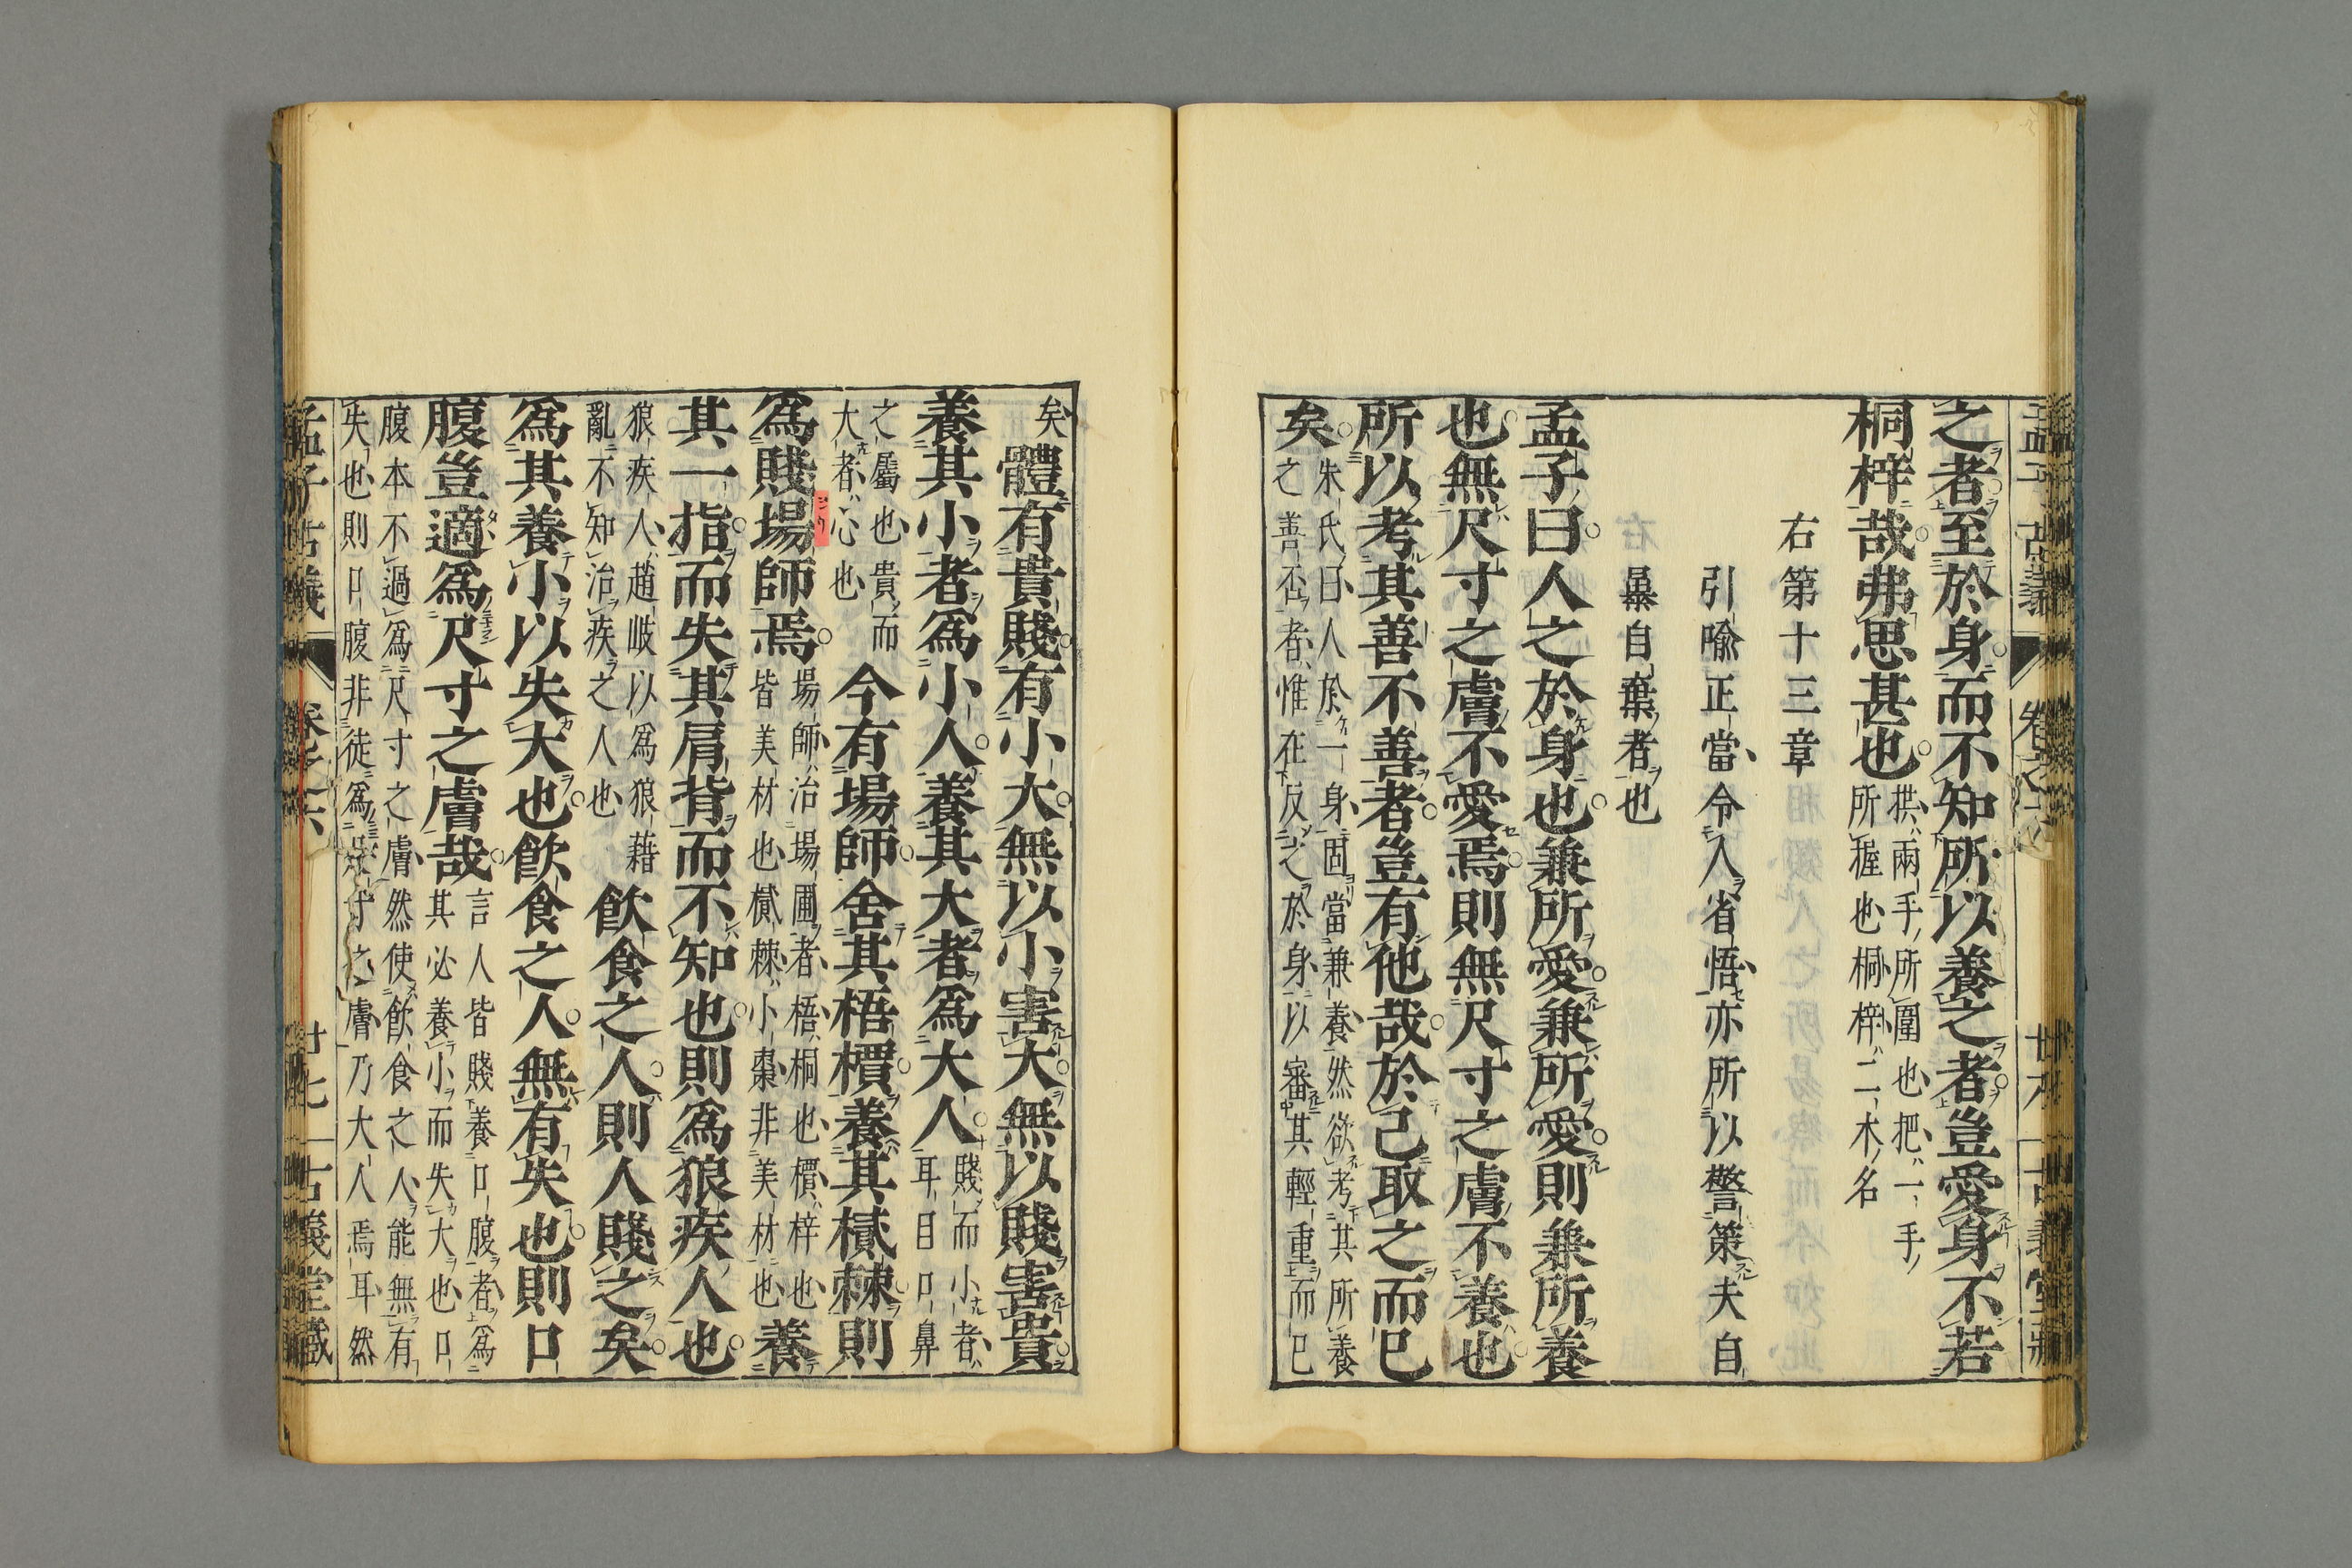 之者至於身而不知所以養之者豈愛身不若
桐梓哉弗思甚也
拱兩手所圍也把一手
所握也桐梓二木名
右第十三章
引喩正當令人省悟亦所以警策夫自
暴自棄者也
孟子曰人之於身也兼所愛兼所愛則兼所養
也無尺寸之膚不愛焉則無尺寸之膚不養也
所以考其善不善者豈有他哉於己取之而已
矣
朱氏曰人於一身固當兼養然欲考其所養
之善否者惟在反之於身以審其輕重而已
矣
體有貴賤有小大無以小害大無以賤害貴
養其小者爲小人養其大者爲大人
賤而小者
耳目口鼻
之屬也貴而
大者心也
今有場師舍其梧檟養其樲棘則
爲賤場師焉
場師治場圃者梧桐也檟梓也
皆美材也樲棘小棗非美材也
養
其一指而失其肩背而不知也則爲狼疾人也
狼疾人趙岐以爲狼藉
亂不知治疾之人也
飮食之人則人賤之矣
爲其養小以失大也飮食之人無有失也則口
腹豈適爲尺寸之膚哉
言人皆賤養口腹者爲
其必養小而失大也口
腹本不過爲尺寸之膚然使飮食之人能無有
失也則口腹非徒爲尺寸之膚乃大人焉耳然
孟子古義
卷之六
廿七
古義堂藏